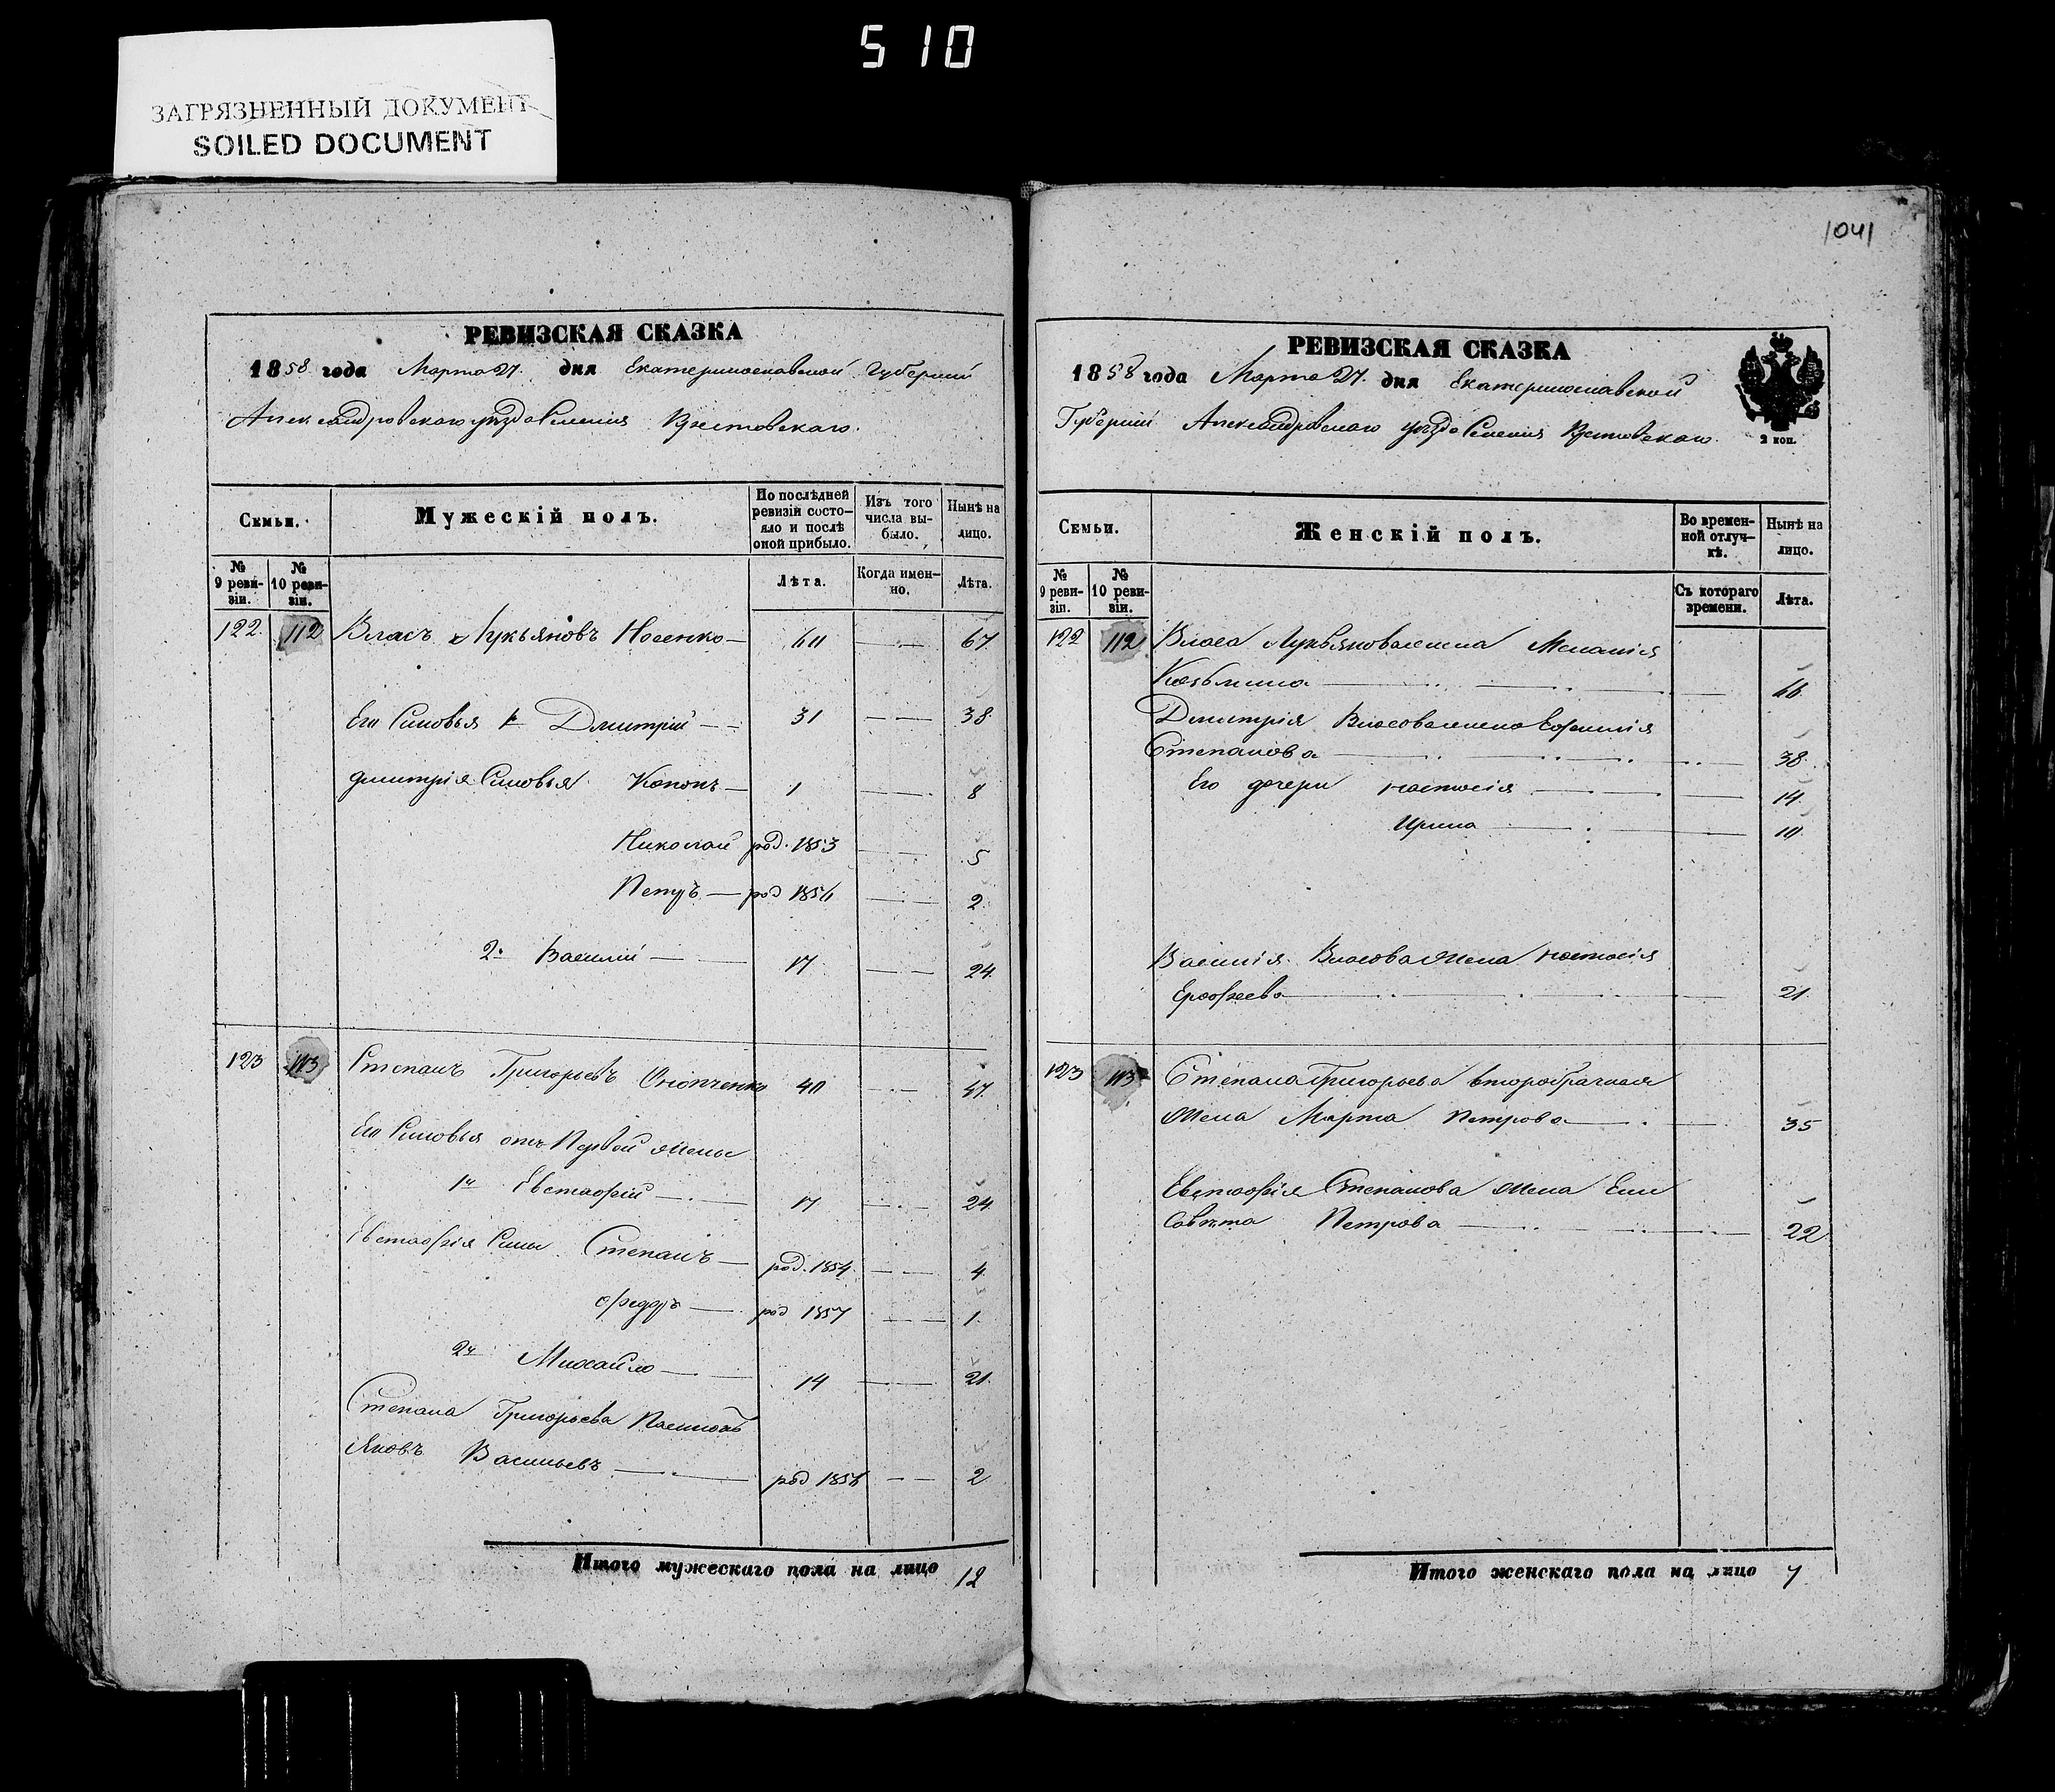 510
ЗАГРЯЗНЕННЫЙ ДОКУМЕНТ
SOILED DOCUMENT
1041
РЕВИЗСКАЯ СКАЗКА
1858 года Марта 27. дня Екатеринославской Губерніи
Александровскаго уезда Селенія
Семьи.
Мужескій полъ.
По послѣдней ревизіи состо-яло и послѣ оной прибыло.
Изъ того числа вы-было.
Нынѣ на лицо.
№ 9 реви-зіи.
№ 10 реви-зіи.
Лѣта.
Когда имен-но.
Лѣта.
122. 112 Власъ Лукьяновъ Носенко — 60 — 67
Его Сыновья 1й Дмитрій — 31 — 38.
Дмитрія Сыновья Кононъ — 1 — 8
Николай род. 1853 — 5
Петръ — род 1856 — 2.
2й Василій — 17 — 24.
123 113 Степанъ Григорьевъ 40 — 47.
Его Сыновья отъ Первой жены
1й Евстафій — 17 — 24
Евстафія Сыны Степанъ — род. 1854. — 4.
Федоръ — род 1857 — 1.
2й Михайло — 14 — 21.
Степана Григорьева
Яковъ Васильевъ — род 1856 — 2
Итого мужескаго пола на лицо 12
РЕВИЗСКАЯ СКАЗКА
1858 года Марта 27. дня Екатеринославской
Губерніи Александровскаго уезда Селенія
2 коп.
Семьи.
Женскій полъ.
Во времен-ной отлуч-кѣ.
Нынѣ на лицо.
№ 9 реви-зіи.
№ 10 реви-зіи.
Съ котораго времени.
Лѣта.
122 112 Власа Лукьянова жена Меланія
Козьмина — 66.
Дмитрія Власова жена Евфимія
Степанова — 38.
Его дочери Настасія — 14.
Ирина — 10.
Василія Власова жена Настасія
Ерофеева — 21.
123 113 Степана Григорьева второбрачная
жена Марта Петрова — 35
Евстафія Степанова жена Ели
савета Петрова — 22
Итого женскаго пола на лицо 7